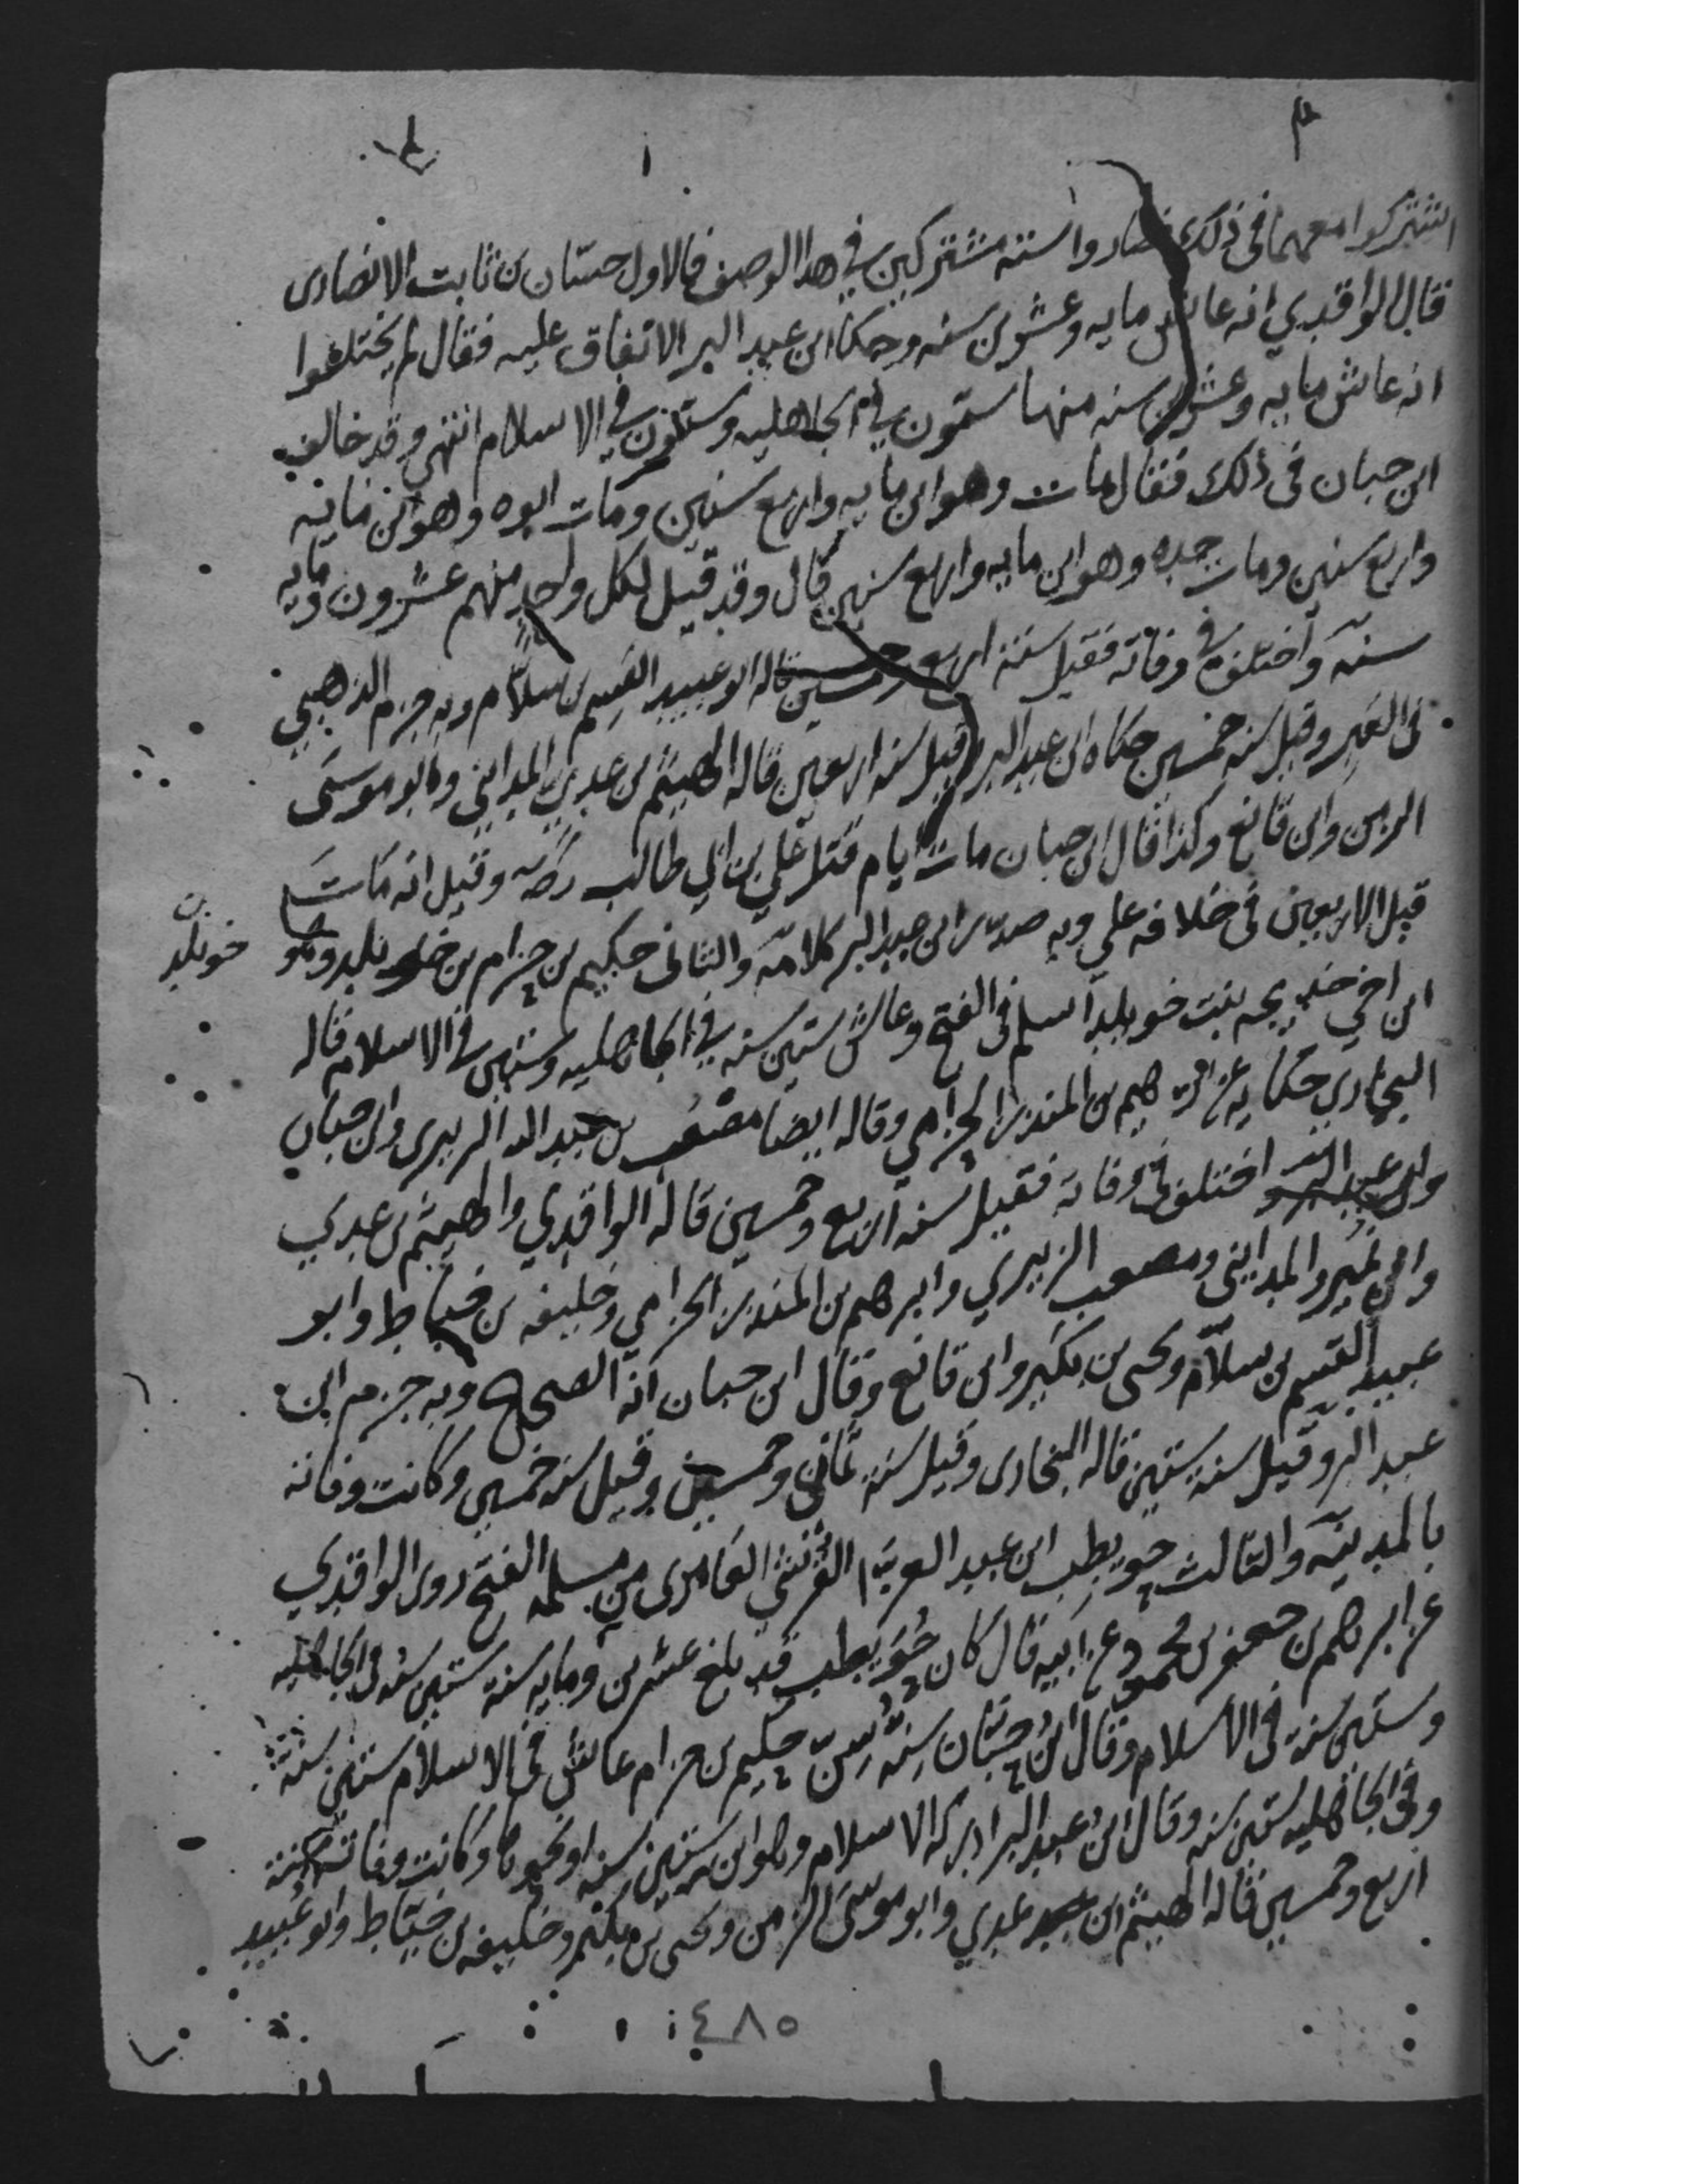 اشتركوا معهما في ذلك فصاروا ستة مشتركين في هذا الوصف فالاول حسّان بن ثابت الانصارى
قال الواقدي انه عاش مايه وعشرين سنه وحكا ابن عبد البر الاتفاق عليه فقال لم يختلفوا
انه عاش مايه وعشرين سنه منها ستون في الجاهليه وستون في الاسلام انتهى وقد خالف
ابن حبان في ذلك فقال مات وهو ابن مايه واربع سنين ومات ابوه وهو ابن مايه
واربع سنين ومات جده وهو ابن مايه واربع سنين قال وقد قيل لكل واحد منهم عشرون ومايه
سنة واختلف في وفاته فقيل سنة اربع وخمسين قاله ابو عبيد القسم بن سلّام وبه جزم الذهبي
في العبر وقيل سنه خمسين حكاه ابن عبد البر وقيل سنه اربعين قاله الهيثم بن عدي والمدايني وابو موسى
الزمن وابن قانع وكذا قال ابن حبان مات ايام قتل علي بن ابي طالب رضه وقيل انه مات
قبل الاربعين في خلافه علي وبه صدر ابن عبد البر كلامه والثاني حكيم بن حزام بن خويلد وهو
خويلد
ابن اخي خديجه بنت خويلد اسلم في الفتح وعاش ستين سنه في الجاهليه وستين في الاسلام قاله
البخاري حكايه عن ابرهيم بن المنذر الحزامي وقاله ايضا مصعب بن عبد الله الزبيرى وابن حبان
وابن عبد البر اختلف في وفاته فقيل سنه اربع وخمسين قاله الواقدي والهيثم بن عدي
وابن نمير والمدايني ومصعب الزبيري وابرهيم بن المنذر الحزامي وخليفه بن خياط وابو
عبيد القسم بن سلّام ويحيى بن بكير وابن قانع وقال ابن حبان انه الصحيح وبه جزم ابن
عبد البر وقيل سنة ستين قاله البخارى وقيل سنة ثمان وخمسين وقيل سنه خمسين وكانت وفاته
بالمدينة والثالث حويطب ابن عبد العزى القرشي العامرى من مسلمه الفتح روى الواقدي
عن ابرهيم بن جعفر بن محمود عن ابيه قال كان حُوَيطب قد بلغ عشرين ومايه سنة ستين سنه في الجاهليه
وستين سنة في الاسلام وقال ابن حبّان سِنّه سِنّ حكيم بن حزام عاش في الاسلام ستين سنة
وفي الجاهليه ستين سنه وقال ابن عبد البر ادركه الاسلام وهو ابن ستين سنه او نحوها وكانت وفاته سنة
اربع وخمسين قاله الهيثم ابن عدي وابو موسى الزمن ويحيى بن بكير وخليفه بن خيّاط وابو عبيد
٤٨٥